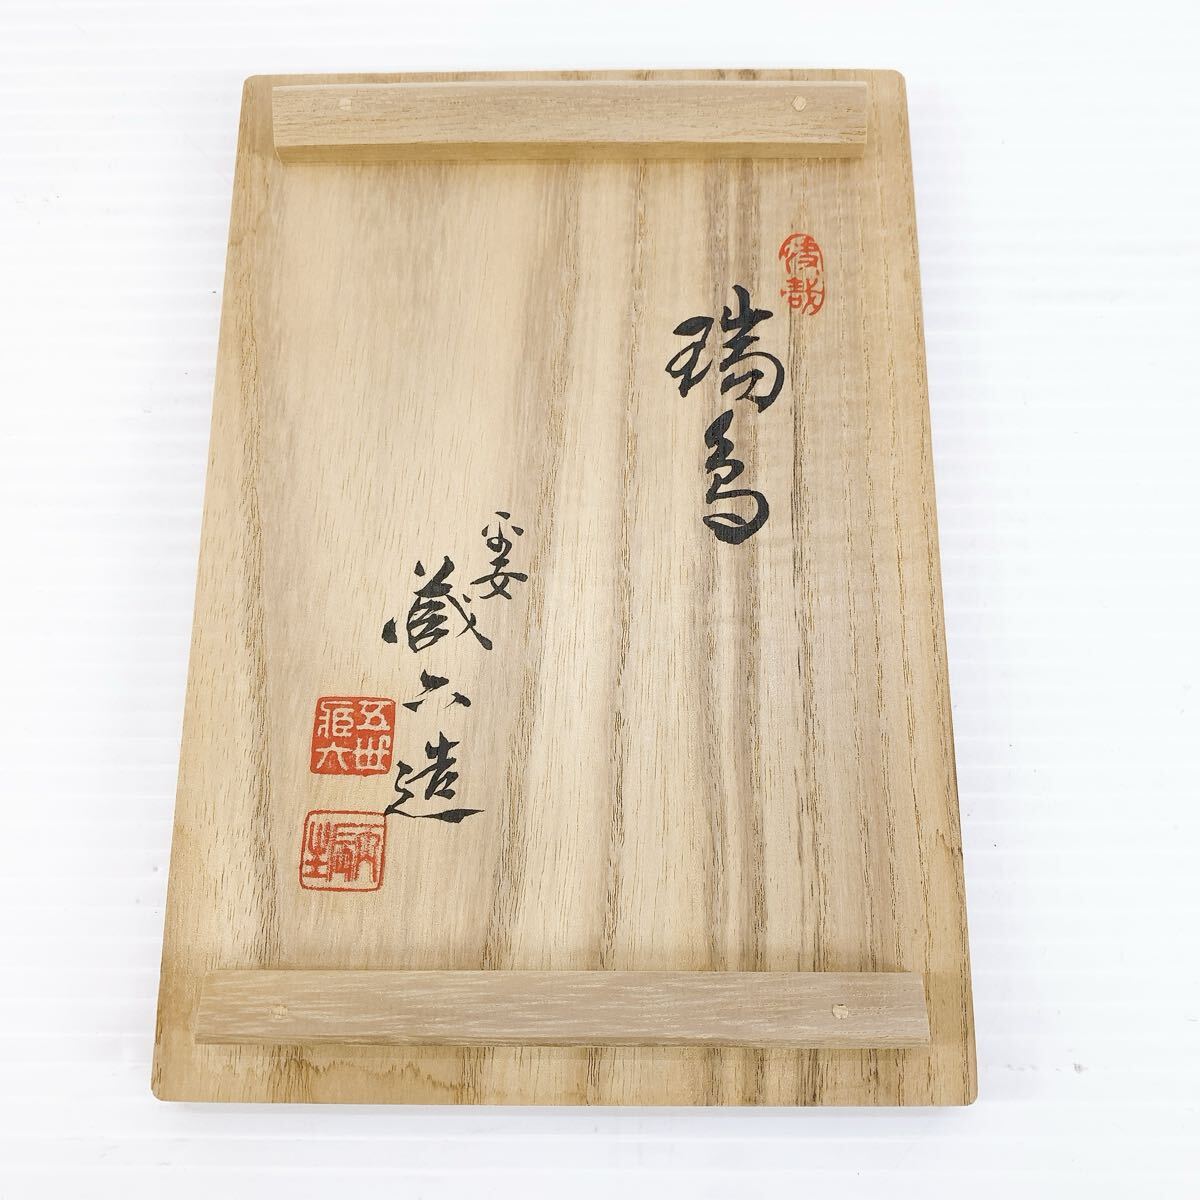 瑞鳥
平安
蔵六造
五世
蔵六